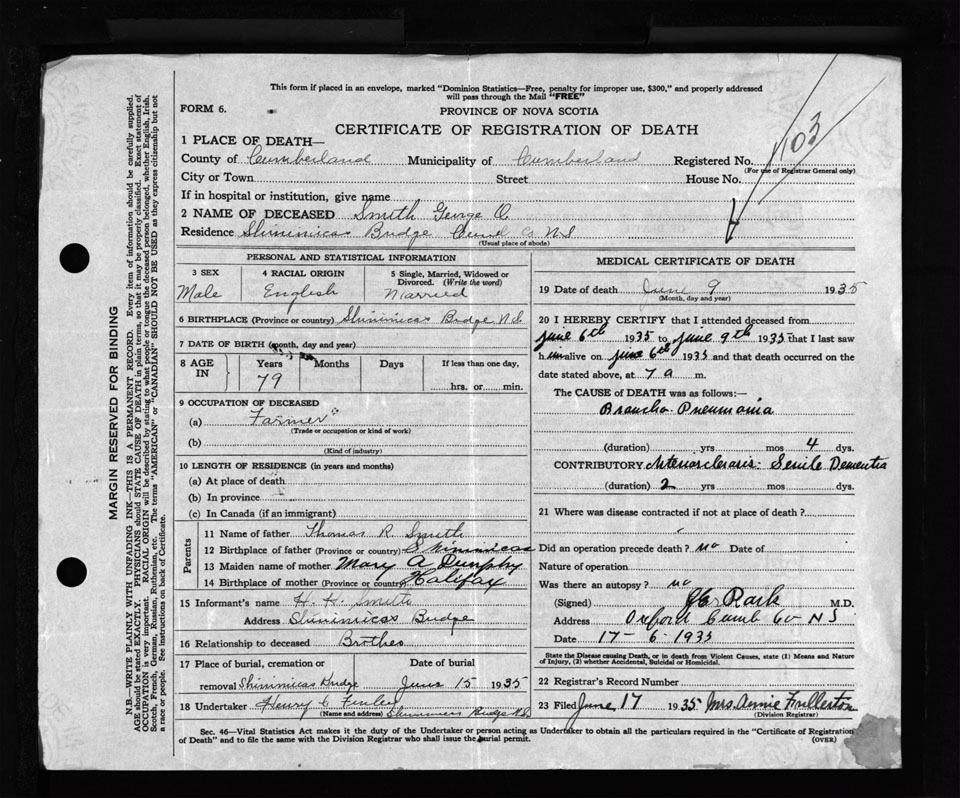 This form if placed in an envelope, marked "Dominion Statistics—Free, penalty for improper use, $300," and properly addressed
will pass through the Mail "FREE"
FORM 6.
PROVINCE OF NOVA SCOTIA
CERTIFICATE OF REGISTRATION OF DEATH
103
1 PLACE OF DEATH—
County of Cumberland Municipality of Cumberland Registered No.
(For use of Registrar General only)
City or Town Street House No.
If in hospital or institution, give name
2 NAME OF DECEASED Smith George O
Residence Shinimicas Bridge Cumb Co. N.S
(Usual place of abode)
PERSONAL AND STATISTICAL INFORMATION
3 SEX 4 RACIAL ORIGIN 5 Single, Married, Widowed or
Divorced. (Write the word)
Male English Married
6 BIRTHPLACE (Province or country) Shinimicas Bridge N.S.
7 DATE OF BIRTH (month, day and year)
8 AGE IN Years Months Days If less than one day,
79 hrs. or min.
9 OCCUPATION OF DECEASED
(a) Farmer
(Trade or occupation or kind of work)
(b)
(Kind of industry)
10 LENGTH OF RESIDENCE (in years and months)
(a) At place of death
(b) In province
(c) In Canada (if an immigrant)
Parents
11 Name of father Thomas R. Smith
12 Birthplace of father (Province or country) Shinimicas
13 Maiden name of mother Mary A Dunphy
14 Birthplace of mother (Province or country) Halifax
15 Informant's name H. H. Smith
Address Shinimicas Bridge
16 Relationship to deceased Brother
17 Place of burial, cremation or Date of burial
removal Shinimicas Bridge June 15 1935
18 Undertaker Henry C Finley
(Name and address) Shinimicas Bridge N.S.
MEDICAL CERTIFICATE OF DEATH
19 Date of death June 9 1935
(Month, day and year)
20 I HEREBY CERTIFY that I attended deceased from
June 6th 1935 to June 9th 1935 that I last saw
h im alive on June 6th 1935 and that death occurred on the
date stated above, at 7 a m.
The CAUSE OF DEATH was as follows:—
Broncho-Pneumonia
(duration) yrs mos 4 dys.
CONTRIBUTORY Arteriosclerosis: Senile Dementia
(duration) 2 yrs mos dys.
21 Where was disease contracted if not at place of death?
Did an operation precede death? no Date of
Nature of operation
Was there an autopsy? no
(Signed) M.D.
Address Oxford Cumb Co NS
Date 17-6-1935
State the Disease causing Death, or in death from Violent Causes, state (1) Means and Nature
of Injury, (2) whether Accidental, Suicidal or Homicidal.
22 Registrar's Record Number
23 Filed June 17 1935 Mrs. Annie Fullerton
(Division Registrar)
Sec. 46—Vital Statistics Act makes it the duty of the Undertaker or person acting as Undertaker to obtain all the particulars required in the "Certificate of Registration
of Death" and to file the same with the Division Registrar who shall issue the burial permit. (OVER)
MARGIN RESERVED FOR BINDING
N.B.—WRITE PLAINLY WITH UNFADING INK—THIS IS A PERMANENT RECORD. Every item of information should be carefully supplied.
AGE should be stated EXACTLY. PHYSICIANS should STATE CAUSE OF DEATH in plain terms, so that it may be properly classified. Exact statement of
OCCUPATION is very important. RACIAL ORIGIN will be described by stating to what people or tongue the deceased person belonged, whether English, Irish,
Scotch, French, German, Russian, Ruthenian, etc. The terms "AMERICAN" or "CANADIAN" SHOULD NOT BE USED as they express citizenship but not
a race or people. See instructions on back of Certificate.